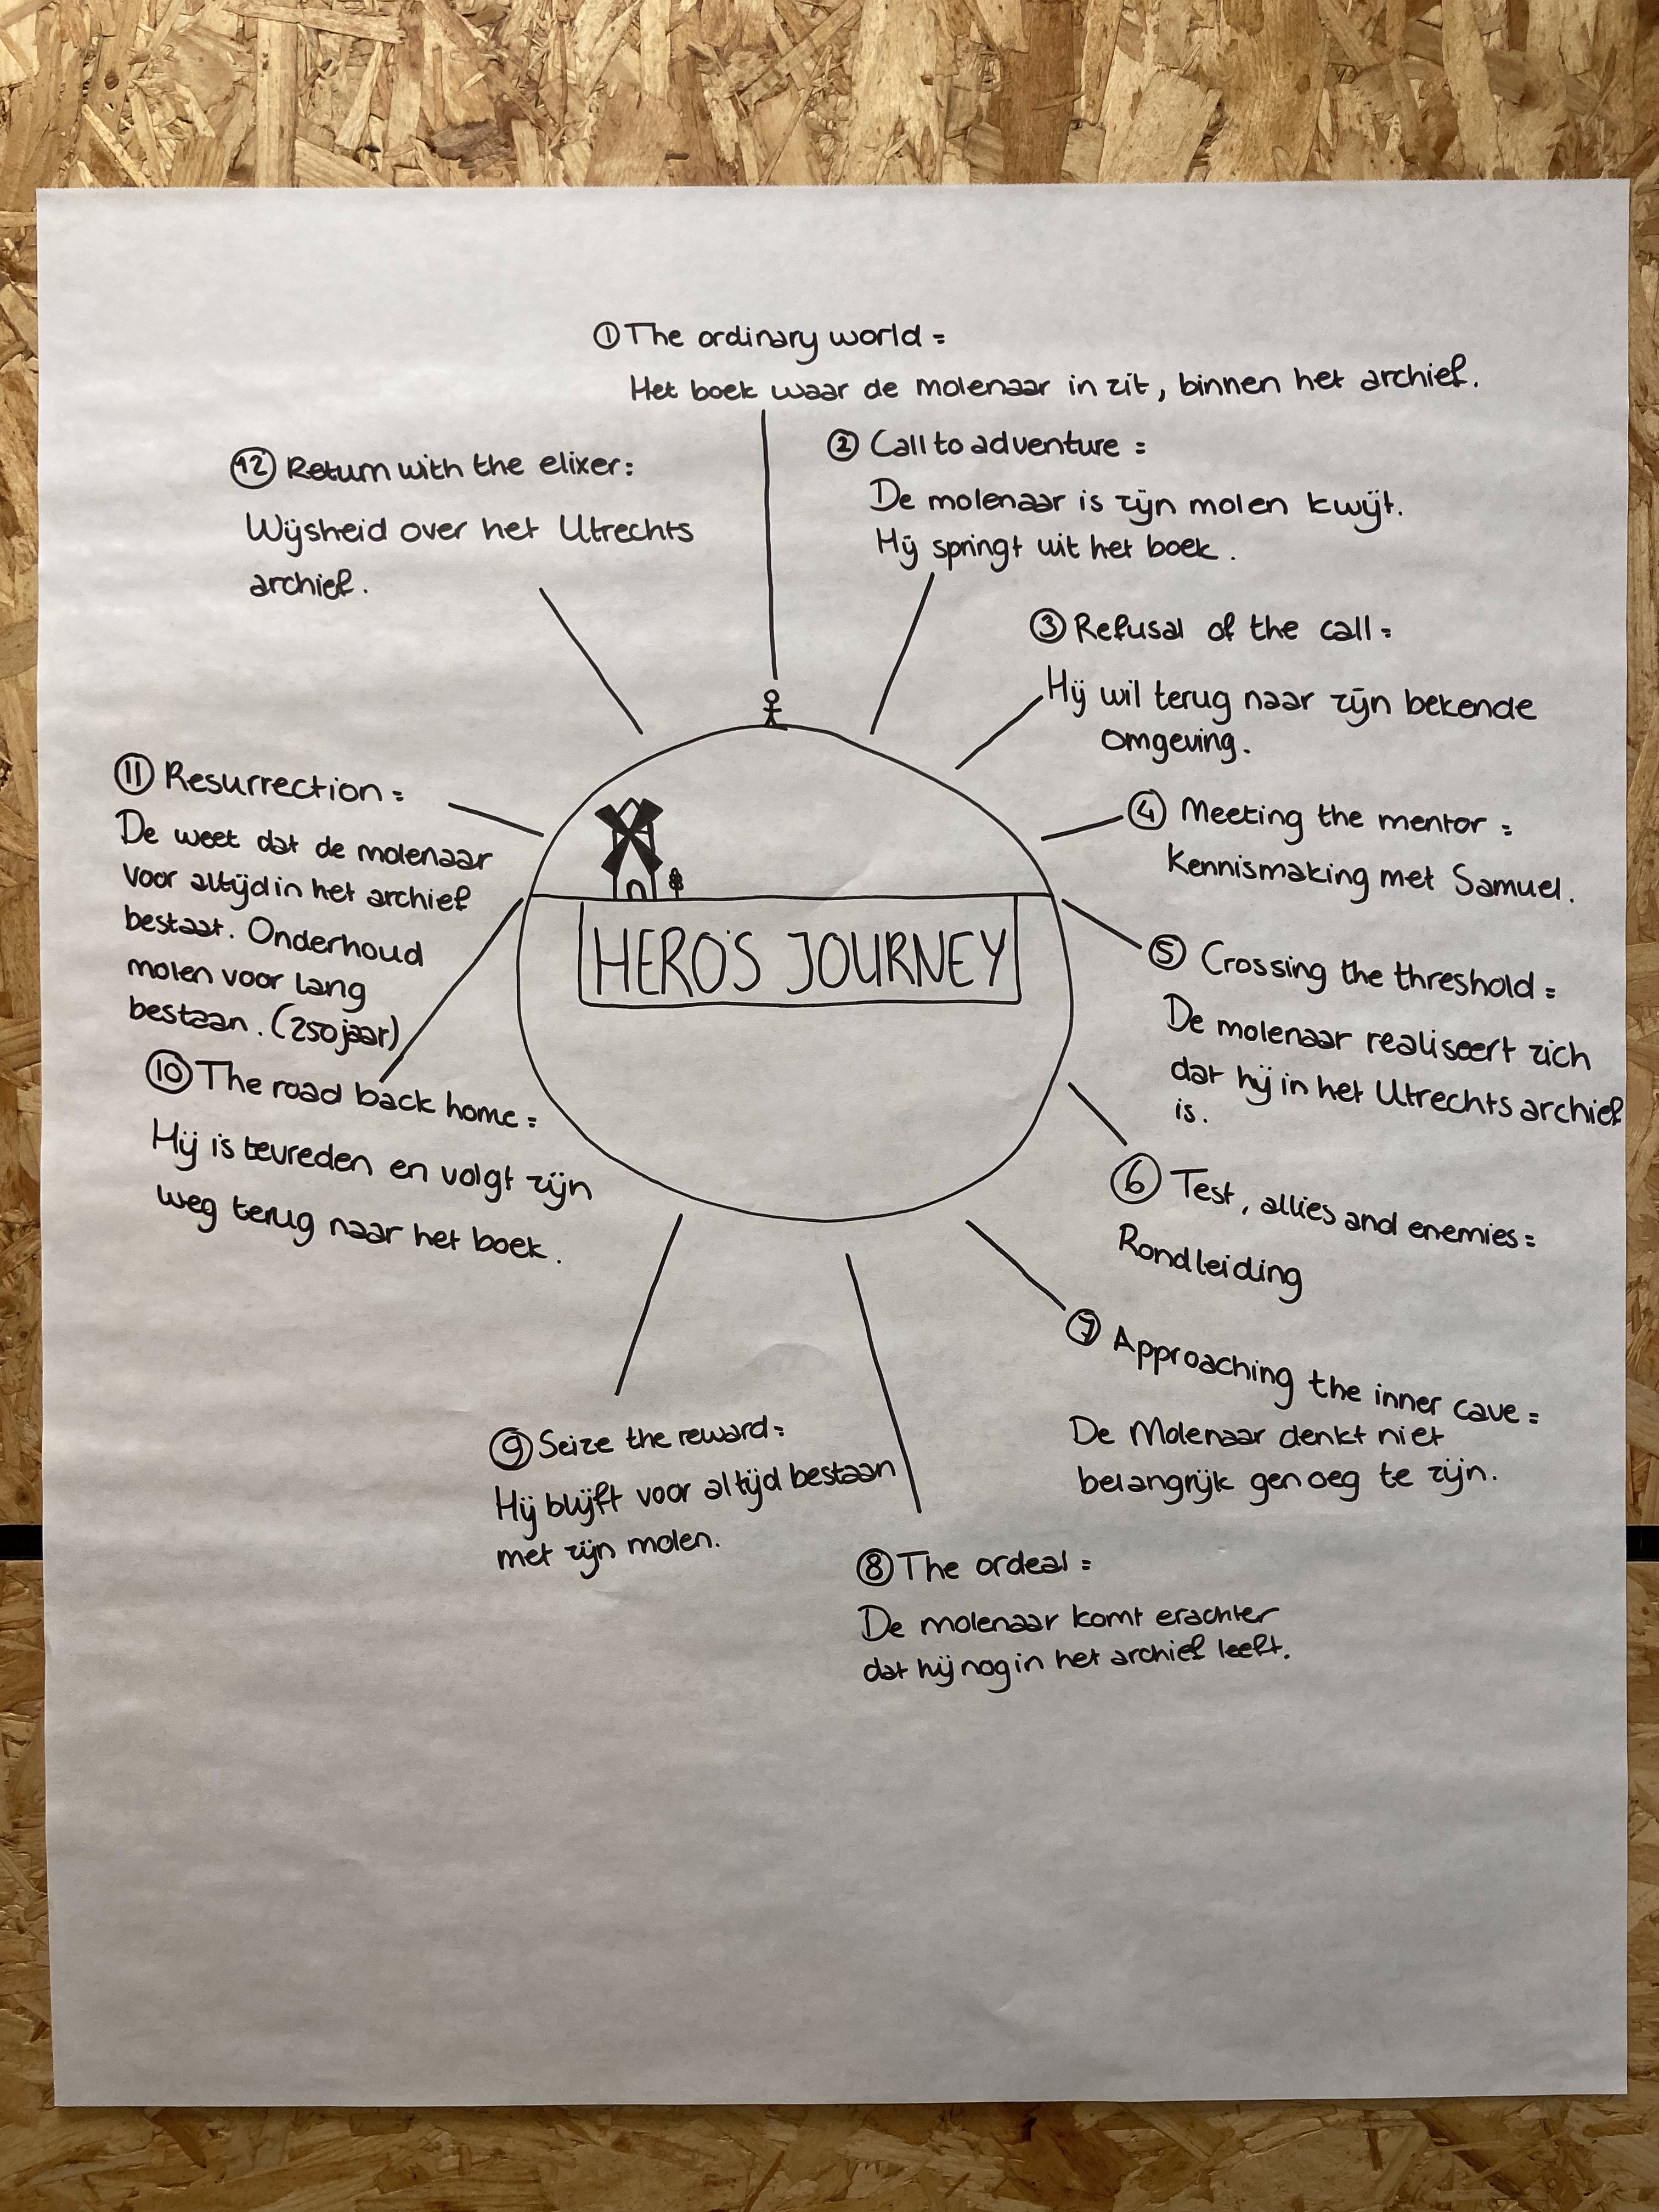 ① The ordinary world =
Het boek waar de molenaar in zit, binnen het archief.
② Call to adventure =
De molenaar is zijn molen kwijt.
Hij springt uit het boek.
③ Refusal of the call =
Hij wil terug naar zijn bekende
omgeving.
④ Meeting the mentor =
Kennismaking met Samuel.
⑤ Crossing the threshold =
De molenaar realiseert zich
dat hij in het Utrechts archief
is.
⑥ Test, allies and enemies =
Rondleiding
⑦ Approaching the inner cave =
De Molenaar denkt niet
belangrijk genoeg te zijn.
⑧ The ordeal =
De molenaar komt erachter
dat hij nog in het archief leeft.
⑨ Seize the reward =
Hij blijft voor altijd bestaan
met zijn molen.
⑩ The road back home =
Hij is tevreden en volgt zijn
weg terug naar het boek.
⑪ Resurrection =
De weet dat de molenaar
voor altijd in het archief
bestaat. Onderhoud
molen voor lang
bestaan. (250 jaar)
⑫ Return with the elixer:
Wijsheid over het Utrechts
archief.
HERO'S JOURNEY